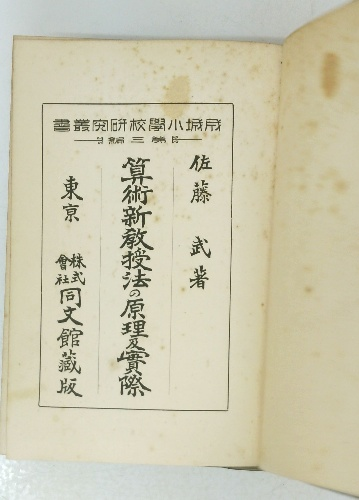 成城小學校研究叢書
第三編
佐藤武著
算術新教授法の原理及實際
東京 株式會社同文館藏版